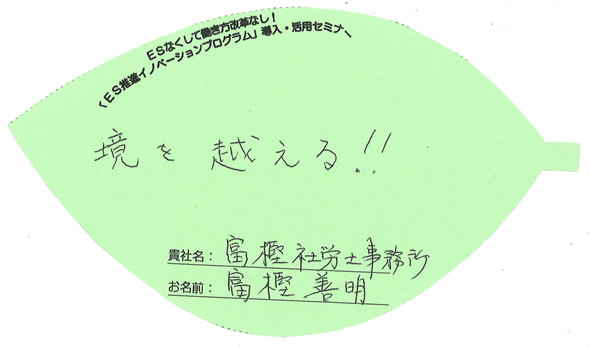 ESなくして働き方改革なし！
「ES推進イノベーションプログラム」導入・活用セミナー
境を越える!!
貴社名：富樫社労士事務所
お名前：富樫善明